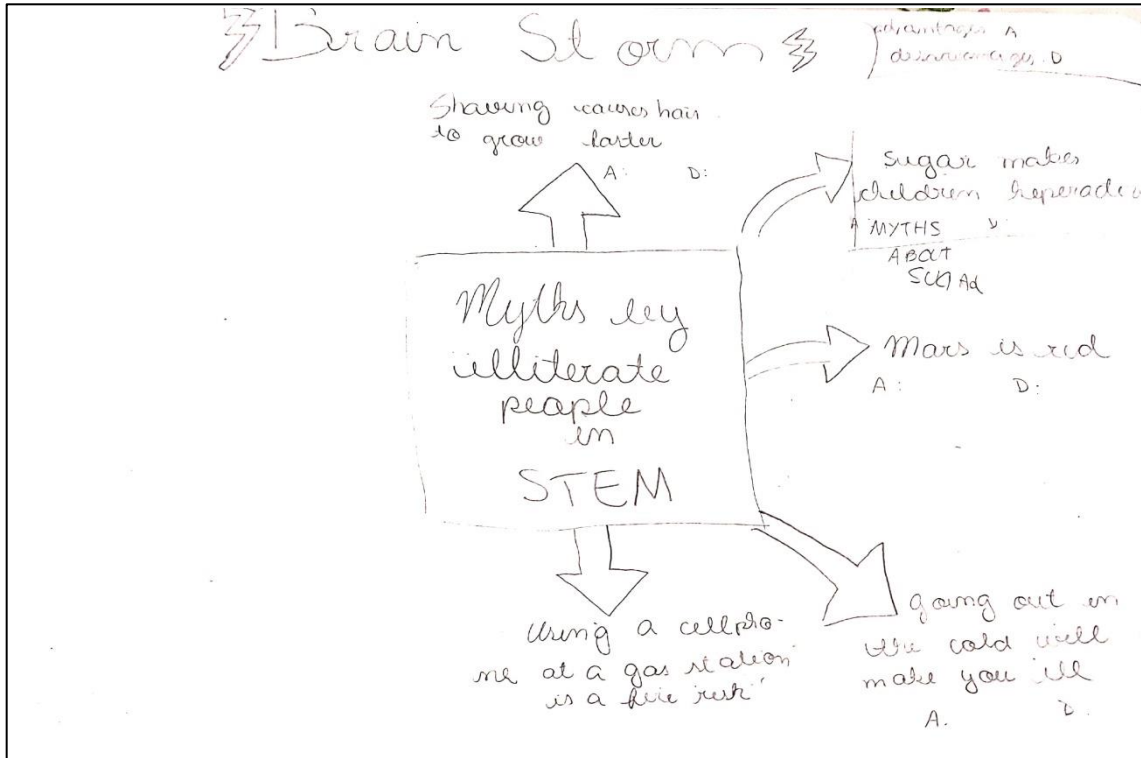 Brain Storm
advantages A
disadvantages D
Shaving causes hair
to grow faster
A: D:
sugar makes
children heperactiv
A MYTHS D:
ABOUT
SUGAR
Myths by
illiterate
people
in
STEM
Mars is red
A: D:
Using a cellpho-
ne at a gas station
is a fire risk
going out in
the cold will
make you ill
A. D.